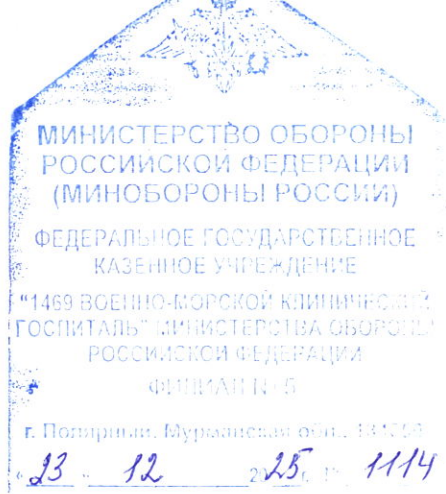 МИНИСТЕРСТВО ОБОРОНЫ
РОССИЙСКОЙ ФЕДЕРАЦИИ
(МИНОБОРОНЫ РОССИИ)
ФЕДЕРАЛЬНОЕ ГОСУДАРСТВЕННОЕ
КАЗЕННОЕ УЧРЕЖДЕНИЕ
"1469 ВОЕННО-МОРСКОЙ КЛИНИЧЕСКИЙ
ГОСПИТАЛЬ" МИНИСТЕРСТВА ОБОРОНЫ
РОССИЙСКОЙ ФЕДЕРАЦИИ
ФИЛИАЛ № 5
г. Полярный, Мурманская обл.,
"23" 12 2025 г. № 1114